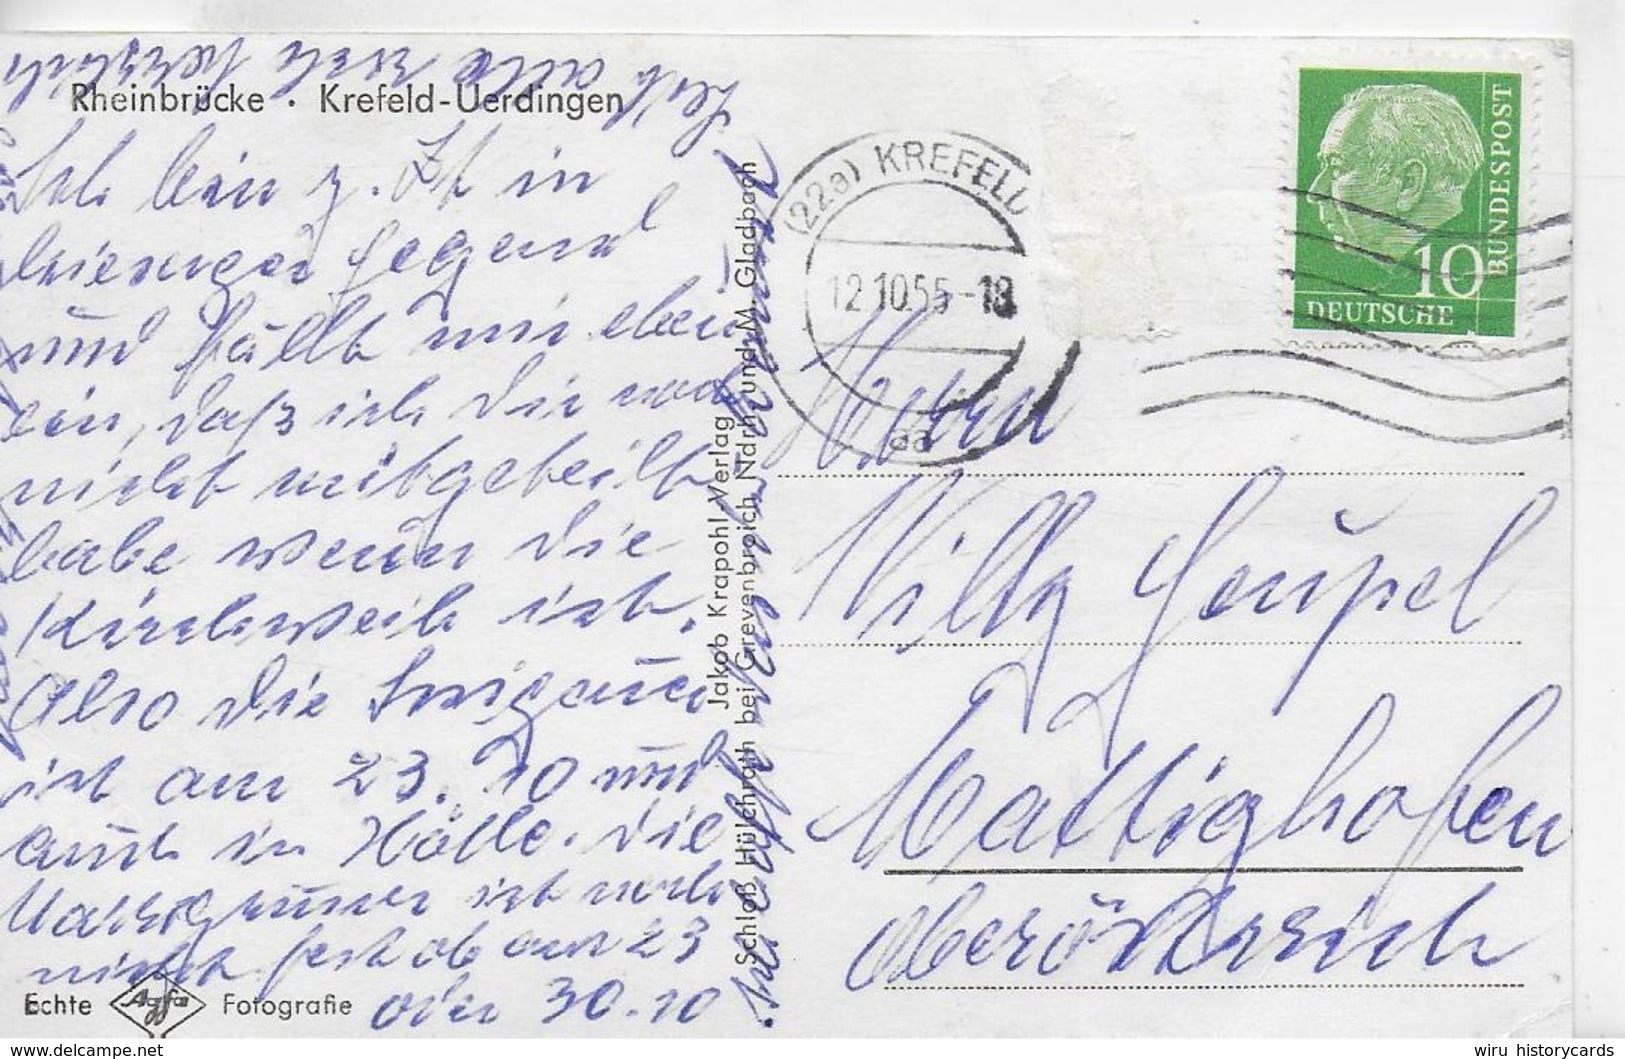 Rheinbrücke · Krefeld-Uerdingen
Ich bin z. Zt in
hiesiger Gegend
und fällt mir eben
ein, daß ich Dir noch
nicht mitgeteilt
habe wenn die
Kirchweih ist.
Also die
ist am 23. 10 und
auch in Hölle. Die
ist noch
nicht fest ob am 23
oder 30. 10
Echte Agfa Fotografie
Jakob Krapohl-Verlag
Schloß Hülchrath bei Grevenbroich Ndrh. und M. Gladbach
(22a) KREFELD
12.10.55-18
da
10
DEUTSCHE
BUNDESPOST
Herrn
Willy Geupel
Mattighofen
Oberöstreich
wiru historycards
www.delcampe.net